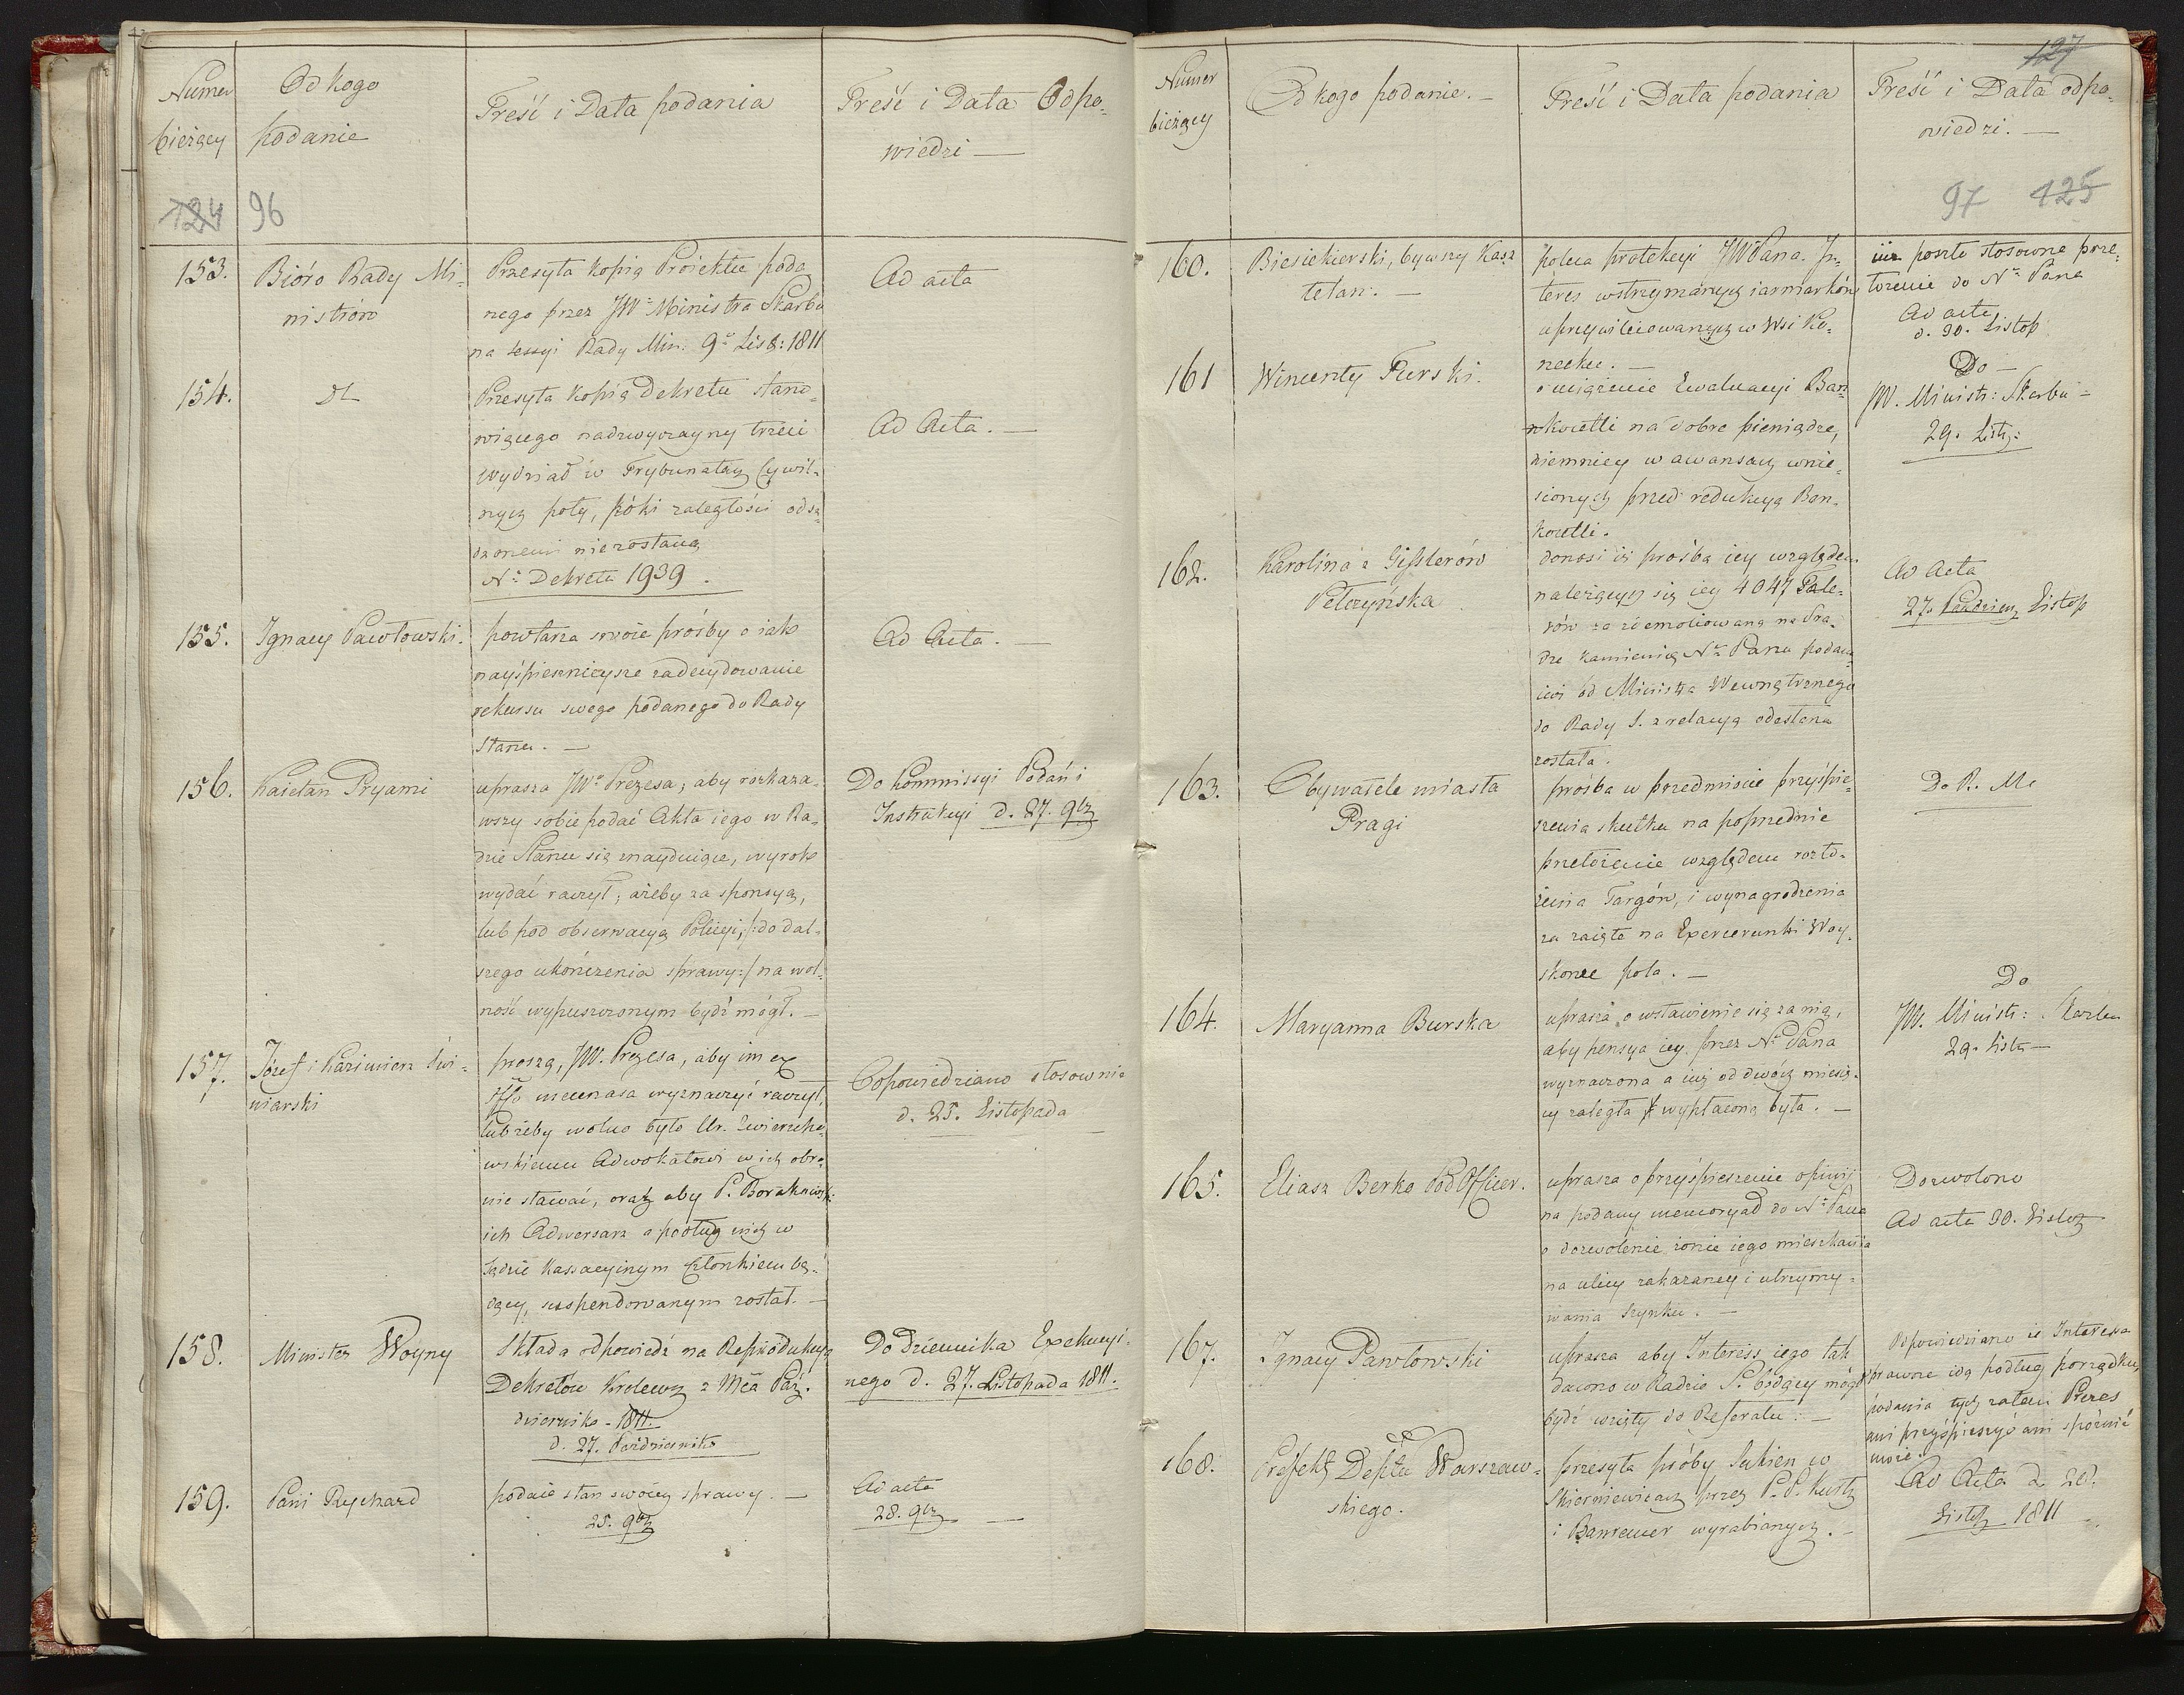 Numer
bieżący
Od kogo
podanie
Treść i Data podania
Treść i Data Odpo-
wiedzi —
124 96
153.
Bióro Rady Mi-
nistrów
Przesyła kopią Proiektu poda
nego przez JW Ministra Skarbu
na sessyi Rady Min: 9º Lis8: 1811
Ad acta
154.
Przesyła kopią Dekretu stano-
wiącego nadzwyczayny trzeci
wydział w Trybunałach Cywil-
nych poty, póki zaległości odsą-
dzonemi nie zostaną
Nº Dekretu 1939.
Ad Acta. —
155.
Ignacy Pawłowski.
powtarza swoie prośby o iak
nayśpiesznieysze zadecydowanie
rekursu swego podanego do Rady
Stanu. —
Ad Acta. —
156.
Kaietan Pryami
uprasza JWº Prezesa, aby rozkaza-
wszy sobie podać Akta iego w Ra-
dzie Stanu się znayduiące, wyrok
wydać raczył, ażeby za sponsyą,
lub pod obserwacyą Policyi, /:do dal-
szego ukończenia sprawy:/ na wol-
ność wypuszczonym bydź mógł. —
Do Kommissyi Podań i
Instrukcyi d. 27. 9br
157.
Józef i Kazimierz Świ-
niarski
proszą, JW. Prezesa, aby im ex
Offo mecenasa wyznaczyć raczył,
lub żeby wolno było Ur. Zwierzcho-
wskiemu Adwokatowi w ich obro-
nie stawać, oraz aby P. Borakowski
ich Adwersarz a podług nich w
Sądzie Kassacyinym członkiem bę-
dący, suspendowanym został. —
Odpowiedziano stosownie
d. 25. Listopada
158.
Minister Woyny
Składa odpowiedź na Reprodukcyą
Dekretów Królewch z Mca Paź-
dziernika - 1811.
d. 27. Października
Do Dziennika Expekucyi-
nego d. 27. Listopada 1811.
159.
Pani Rychard
podaie stan swoiey sprawy. —
25. 9br
Ad acta
28. 9br —
127
Numer
bieżący
Od kogo podanie. —
Treść i Data podania
Treść i Data odpo-
wiedzi. —
97 125
160.
Biesiekierski, bywszy Kasz
telan. —
poleca protekcyi JWPana In-
teres wstrzymanych iarmarków
uprzywileiowanych w Wsi Ko-
necku. —
iuż poszło stosowne prze-
łożenie do Nº Pana
Ad acta
d. 30. Listop
161
Wincenty Turski.
o uiszczenie Ewaluacyi Ban
kocetli na dobre pieniądze,
niemniey w awansach wnie-
sionych przed redukcyą Ban-
kocetli.
Do —
JW. Ministr: Skarbu —
29. Listp:
162.
Karolina z Gisslerów
Pełczyńska
donosi iż prośba iey względem
należących się iey 4047 Tale-
rów za zdemoliowaną na Pra-
dze kamienicę Nº Panu podana
iuż od Ministra Wewnętrznego
do Rady S. z relacyą odesłana
została.
Ad Acta
27. Listop
163.
Obywatele miasta
Pragi
prośba w przedmiocie przyśpie-
szenia skutku na poprzednie
przełożenie względem rozło-
żenia Targów, i wynagrodzenia
za zaięte na Exercerunki Woy-
skowe pola. —
Do R. Me
164.
Maryanna Burska
uprasza o wstawienie się za nią,
aby pensya iey przez Nº Pana
wyznaczona a iuż od dwóch miesię-
cy zaległa wypłaconą była. —
Do
JW. Ministr: Skarbu
29. Listp —
165.
Eliasz Berko PodOfficer.
uprasza o przyśpieszenie opinii
na podany memoryał do Nº Pana
o dozwolenie żonie iego mieszkania
na ulicy zakazaney i utrzymy-
wania szynku. —
Dozwolono
Ad acta 30. Listop
167.
Ignacy Pawłowski
uprasza aby Interess iego tak
dawno w Radzie S. będący mógł
bydź wzięty do Referatu: —
Odpowiedziano że Interessa
prawne idą podług porządku,
podania tych zatem Prezes
ani przyśpieszyć ani spóźnić
może.
168.
Prefekt Depttu Warszaw-
skiego.
przesyła próby Sukien w
Skierniewicach przez P. P. Kurtz
i Banzemer wyrabianych. —
Ad Acta d 28.
Listop 1811